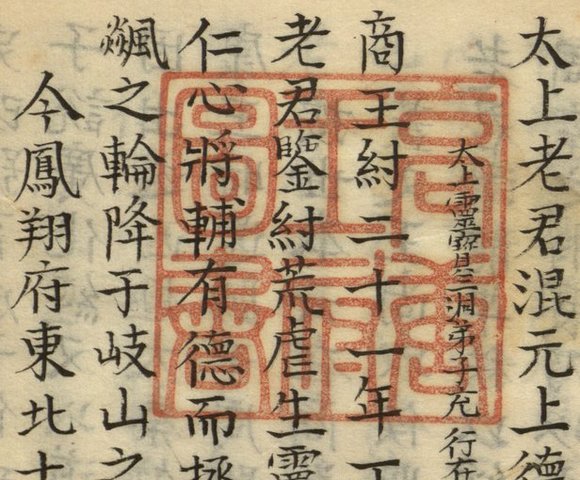 太上老君混元上德
太上靈寶具三洞弟子 行在
商王紂二十一年丁
老君鑒紂荒虐生靈
仁心將輔有德而拯
飈之輪降于岐山之
今鳳翔府東北十
高唐
王府
圖書